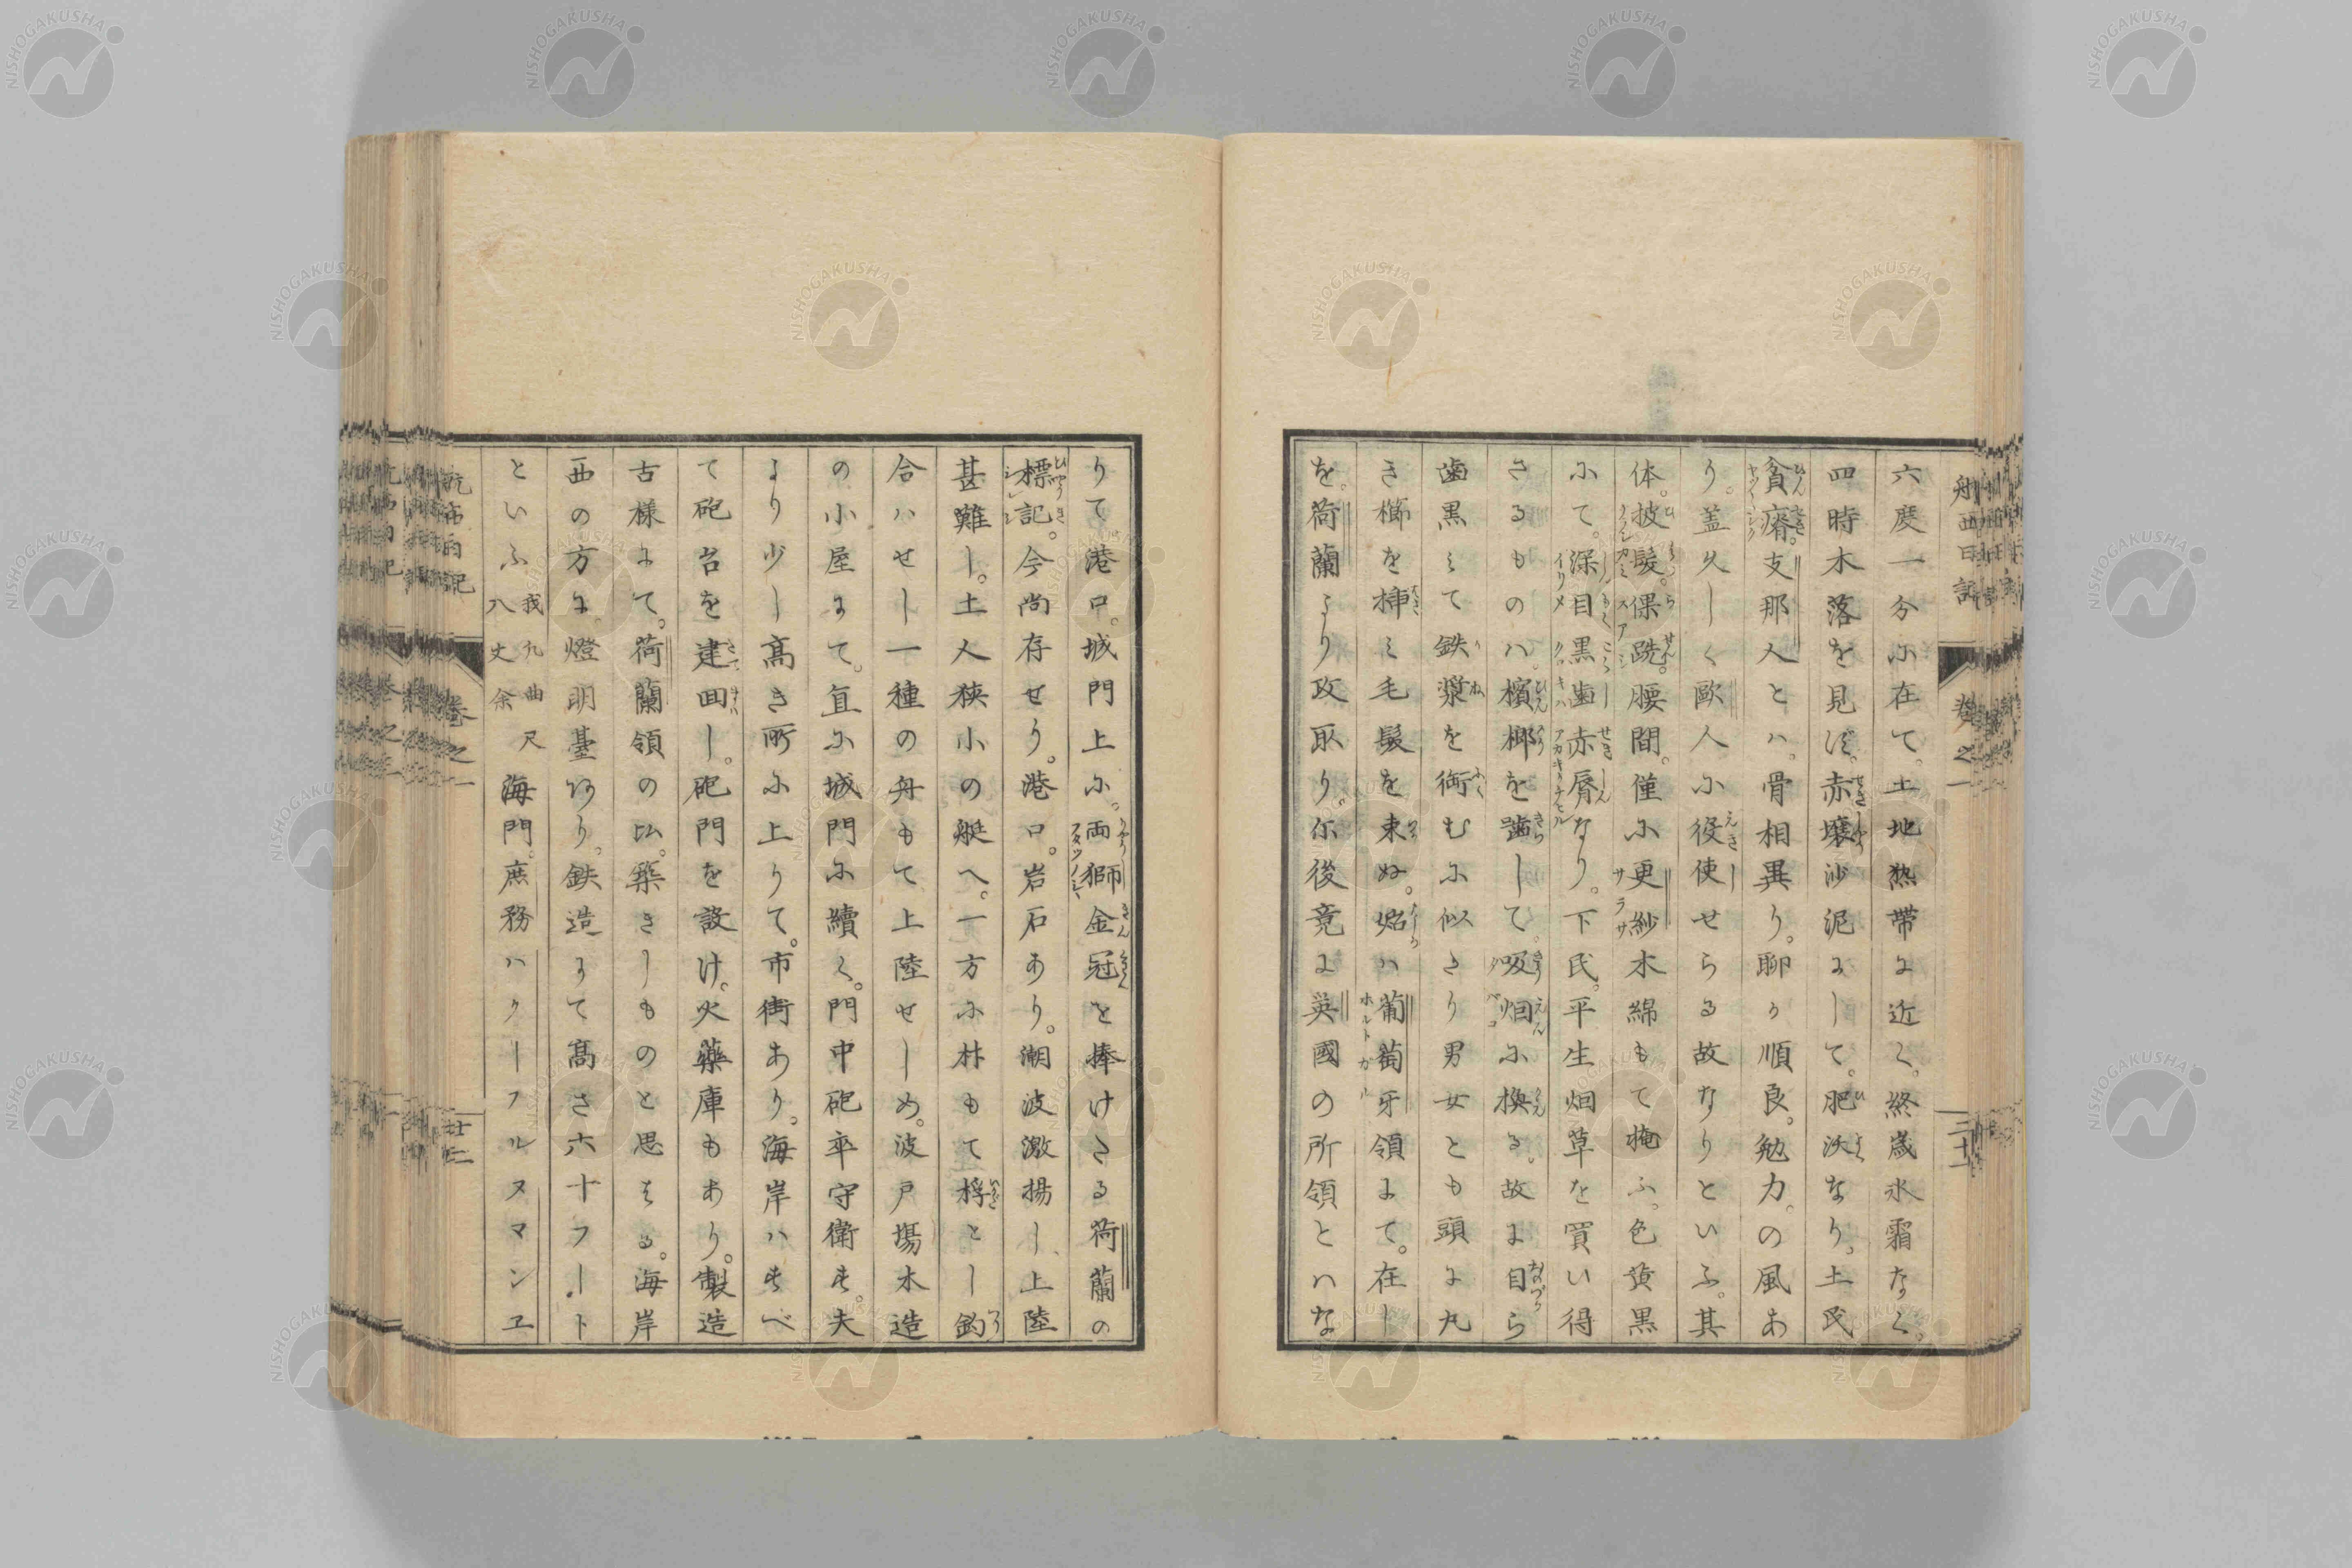 航西日記 巻之一 二十一
六度一分に在て。土地熱帯に近く。終歳氷霜なく。
四時木落を見ず。赤壌沙泥にして。肥沃なり。土民
貧瘠。支那人とハ。骨相異り。聊か順良。勉力。の風あ
り。蓋久しく歐人に役使せらるる故なりといふ。其
体。披髪。倮跣。腰間。僅に更紗木綿もて掩ふ。色黄黒
にて。深目黒歯赤脣なり。下民。平生烟草を買い得
さるものハ。檳榔を齧して。吸烟に換る。故に自ら
歯黒ミて鉄漿を銜むに似さり男女とも頭に丸
き櫛を挿ミ毛髪を束ぬ。始ハ葡萄牙領にて。在し
を。荷蘭より攻取り尓後竟に英國の所領とハな
りて港口。城門上に。両獅金冠を捧けさる荷蘭の
標記。今尚存せり。港口。岩石あり。潮波激揚し、上陸
甚難し。土人狭小の艇へ。一方に材もて桴とし釣
合ハせし一種の舟もて上陸せしめ。波戸場木造
の小屋にて。直に城門に續く。門中砲卒守衛す。夫
より少し高き所に上りて。市街あり。海岸ハすべ
て砲台を建回し。砲門を設け。火藥庫もあり。製造
古様にて。荷蘭領の比。築きしものと思はる。海岸
西の方に。燈明臺あり。鉄造にて高さ六十フート
といふ 我九曲尺八丈余 海門。庶務ハクーフルヌマンエ
航西日記 巻之一 廿二